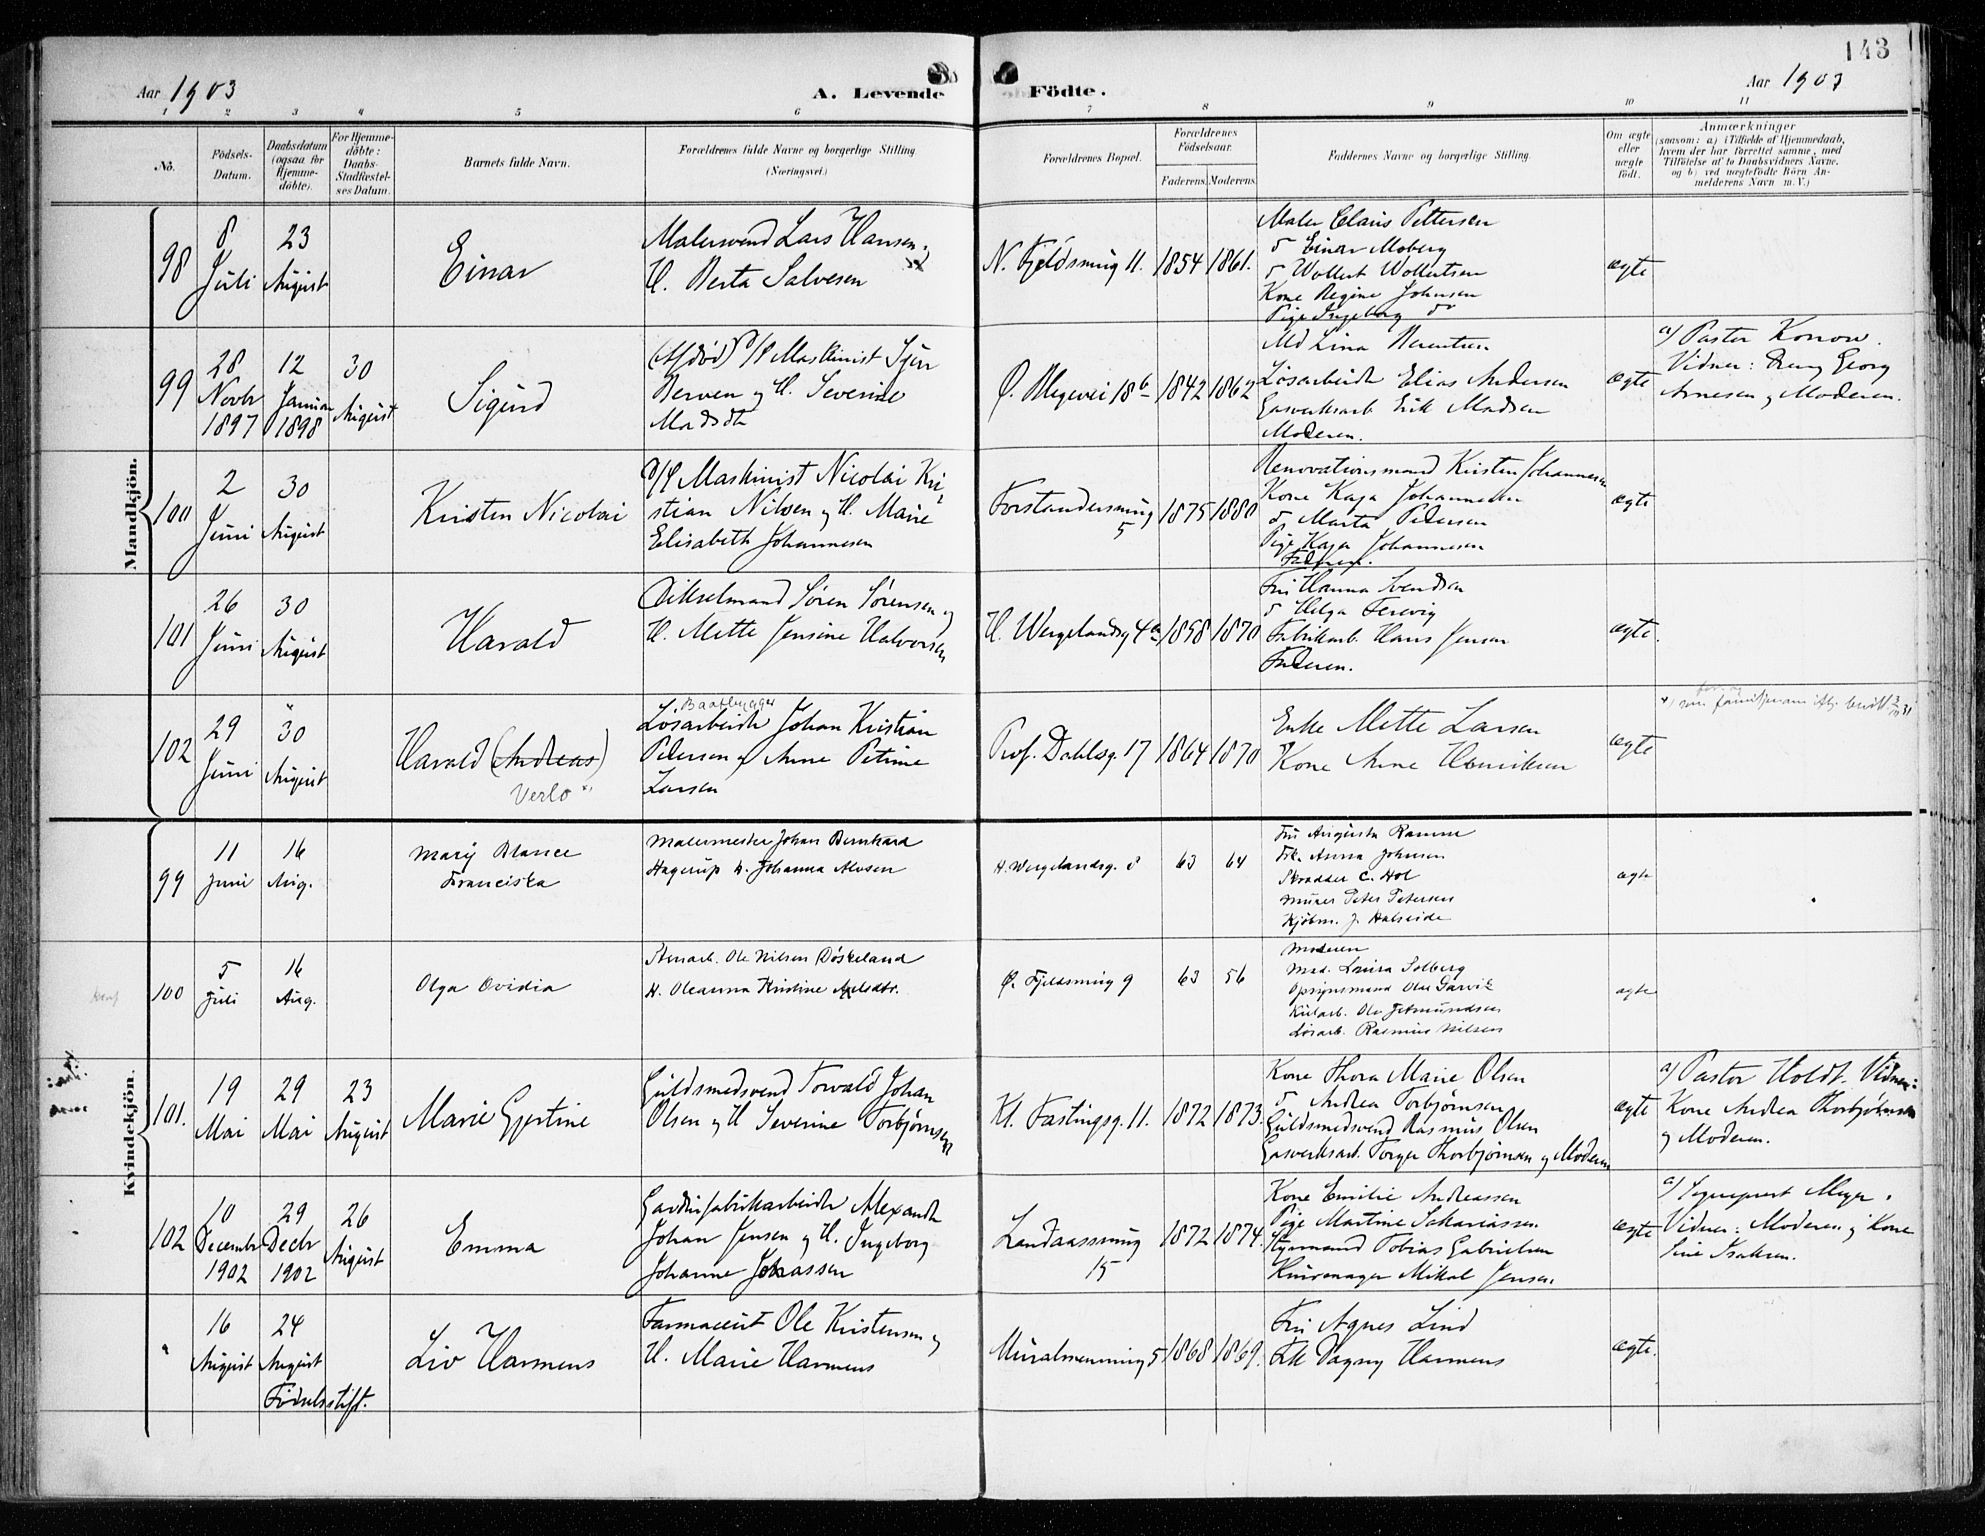 143
Aar 1903
A. Levende
Fødte.
Aar 1903
1 2 3 4 5 6 7 8 9 10 11
No.
Fødsels-
Datum.
Daabsdatum
(ogsaa for
Hjemme-
døbte).
For Hjemme-
døbte:
Daabs-
Stadfæstel-
ses Datum.
Barnets fulde Navn.
Forældrenes fulde Navne og borgerlige Stilling
(Næringsvei.)
Forældrenes Bopæl.
Forældrenes
Fødselsaar.
Faderens. Moderens.
Faddernes Navne og borgerlige Stilling.
Om ægte
eller
uægte
født.
Anmærkninger
(saasom: a) i Tilfælde af Hjemmedaab,
hvem der har forrettet samme, med
Tilføielse af to Daabsvidners Navne.
og b) ved uægtefødte Børn An-
melderens Navn m.V.)
Mandkjön.
98
8
Juli
23
August
Einar
Malersvend Lars Hansen
H. Berta Salvesen
N. Fjeldsmug 11.
1854 1861.
Maler Claus Pettersen
Einar Moberg
Wollert Wollertsen
Kone Regine Johnsen
Pige Ingeborg do
ægte
99
28
Novbr
1897
12
Januar
1898
30
August
Sigurd
(Afdød) D/S Maskinist Sjur
Berven og H. Severine
Madsdtr
Ø. Blegevei 18b
1842 1862
Md Lina Berentsen
Løsarbeider Elias Andersen
Gasverksarb Erik Madsen
Moderen.
ægte
a) Pastor Konow.
Vidner: Dreng Georg
Arnesen og Moderen.
100
2
Juni
30
August
Kristen Nicolai
D/S Maskinist Nicolai Kri-
stian Nilsen og H. Marie
Elisabeth Johannesen
Forstandersmug
5
1875 1880
Renovationsmand Kristen Johannesen
Kone Kaja Johannesen
Marta Pedersen
Pige Kaja Johannesen
Faderen.
ægte
101
26
Juni
30
August
Harald
Søren Sørensen og
H. Mette Jensine Halvorsen
H. Wergelandsg 4a
1858 1870
Fru Hanna Svendsen
Helga Terevig
Fabrikarb. Hans Jensen
Faderen.
ægte.
102
29
Juni
30
August
Harald (Andreas)
Verlo
Baatbygger
Løsarbeider Johan Kristian
Pedersen og Anne Petrine
Larsen
Prof. Dahlsg. 17
1864 1870
Enke Mette Larsen
Kone Anne Henriksen
ægte
Kvindekjön.
99
11
Juni
16
Aug.
Mary Blance
Franciska
Malermester Johan Bernhard
Hagerup H. Johanna Alvsen
H. Wergelandsg. 8
63 64
Fru Augusta Ramm
Frk. Anna Johnsen
Skrædder C. Hol
Murer Peter Petersen
Kjøbm. J. Halseide
ægte
100
5
Juli
16
Aug.
Olga Ovidia
Stenarb. Ole Nilsen Døskeland
H. Oleanna Kristine Axelsdtr.
Ø. Fjeldsmug 9
63 56
Moderen
Mad. Laura Solberg
Opsynsmand Ole Garvik
Kularb. Ole Jetmundsen
Løsarb. Rasmus Nilsen
ægte
101.
19
Mai
29
Mai
23
August
Marie Gjertine
Guldsmedsvend Torvald Johan
Olsen og H Severine Torbjørnsen
Kl. Fastingsg. 11.
1872 1873.
Kone Thora Marie Olsen
Andrea Torbjørnsen
Guldsmedsvend Rasmus Olsen
Gasverksarb. Torger Thorbjørnsen og Moderen
ægte
a) Pastor Holdt. Vidner:
Kone Andrea Thorbjørnsen
og Moderen.
102
10
Decembr
1902
29
Decbr
1902
26
August
Emma
Gardinfabrikarbeider Alexander
Johan Jensen og H. Ingeborg
Johanne Johassen
Landaassmug
15
1872 1874.
Kone Emilie Andreassen
Pige Martine Sakariassen
Styrmand Tobias Gabrielsen
Kurvemager Mikal Jensen.
ægte
a) Sogneprest Meyer.
Vidner: Moderen og Kone
Sine Isaksen.
16
August
24
August
Fødselsstift.
Liv Harmens
Farmaceut Ole Kristensen og
H. Marie Harmens
Muralmenning 5
1868 1869.
Fru Agnes Lind
Frk Dagny Harmens
ægte.